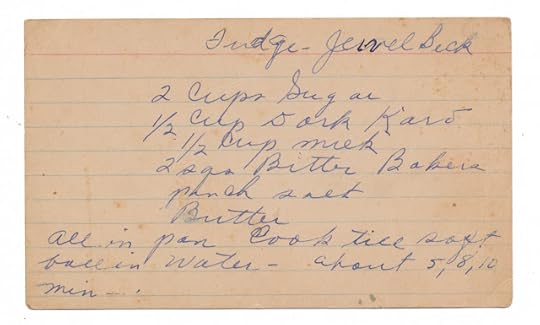 Fudge - Jewel Beck
2 Cups Sugar
1/2 Cup Dark Karo
1/2 Cup milk
2 sqs Bitter Bakers
pinch salt
Butter
all in pan Cook till soft
ball in Water - about 5, 8, 10
min - .